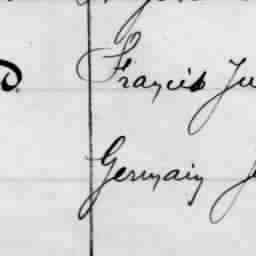 D. Francis Ju
Germain J